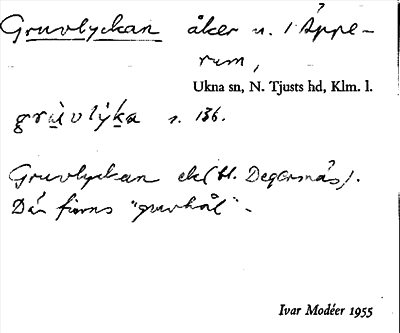 Gruvlyckan åker n. i Äppe-
rum,
Ukna sn, N. Tjusts hd, Klm. l.
grùvlýka s. 136.
Gruvlyckan ek(bl. Degermås).
Där finns "gruvhål" -
Ivar Modéer 1955